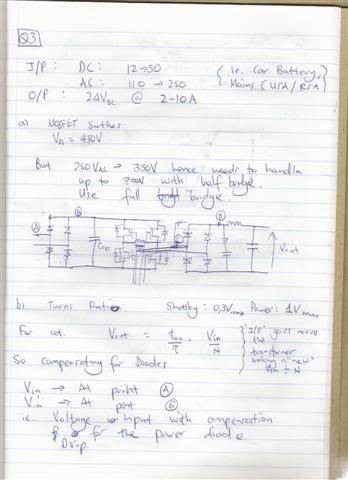 Q3
I/P : DC : 12→50 { ie. Car Battery,
AC : 110 → 250 Mains (USA / }
O/P : 24VDC @ 2-10A
a) MOSFET
Vds = 450V
But 250VAC → 350V hence needs to handle
up to 700V with half bridge.
Use full bridge
A
B
Vout
b) Turns Ratio Shottky : 0,3V Power : 1V max
For cct. Vout = ton/τ . Vin/N { I/P goes across
the
transformer
making a "new"
Vin ÷ N }
So compensating for Diodes
Vin → At point A
Vin' → At point B
ie. Voltage input with compensation
for the power diode
Drop.